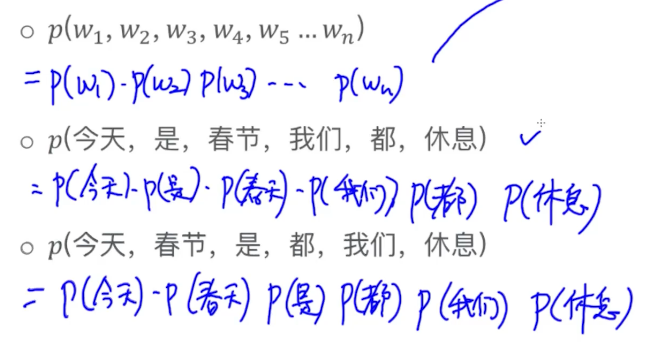 ○ p(w₁, w₂, w₃, w₄, w₅ …wₙ)
= p(w₁)·p(w₂) p(w₃) ···· p(wₙ)
○ p(今天，是，春节，我们，都，休息) ✓
= p(今天)·p(是)·p(春天)·p(我们) p(都) p(休息)
○ p(今天，春节，是，都，我们，休息)
= p(今天)·p(春天) p(是) p(都) p(我们) p(休息)